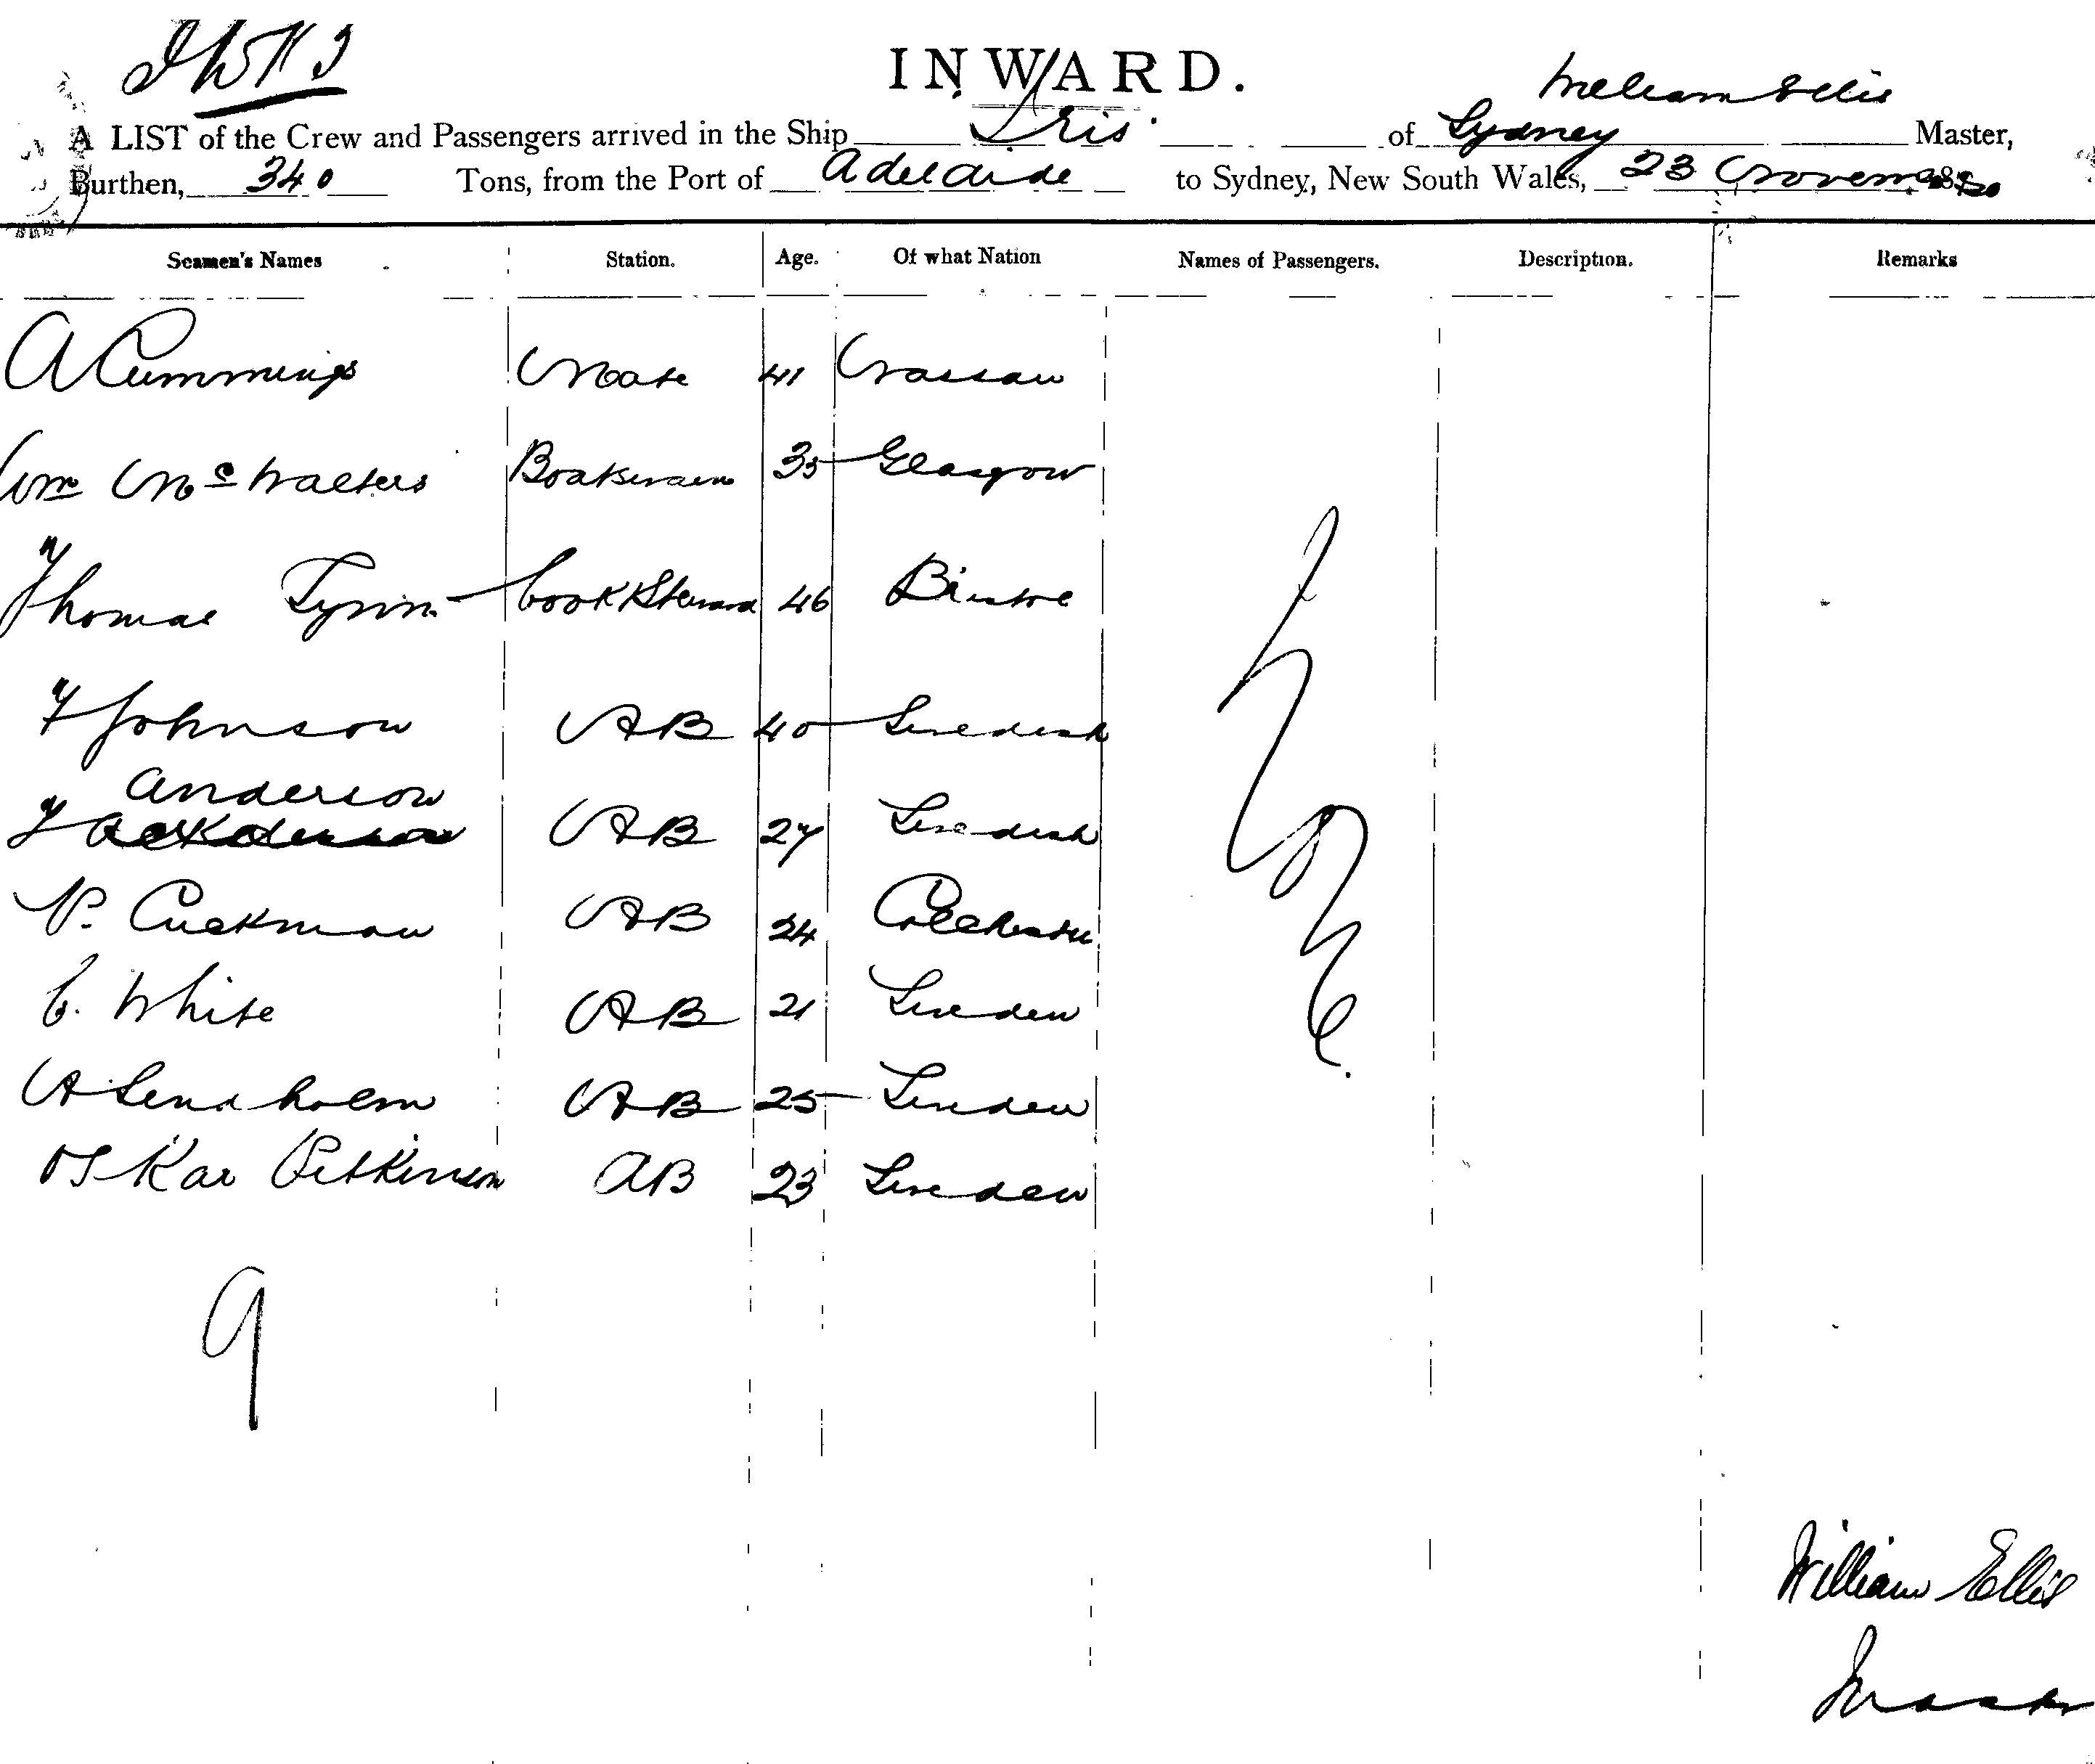 INWARD.
William Ellis
A LIST of the Crew and Passengers arrived in the Ship Iris of Sydney Master,
Burthen, 340 Tons, from the Port of Adelaide to Sydney, New South Wales, 23 November
Seamen's Names Station. Age. Of what Nation Names of Passengers. Description. Remarks
A Cummings Mate 41 Nassau
Wm McWalters Boatswain 35 Glasgow
Thomas Cook & Steward 46 Bristol
F Johnson AB 40 Swedish
Anderson
F AB 27 Swedish
P. Cuckman AB 24 Colchester
C. White AB 21 Sweden
A Lendholm AB 25 Sweden
Oskar AB 23 Sweden
None.
9
William Ellis
Master